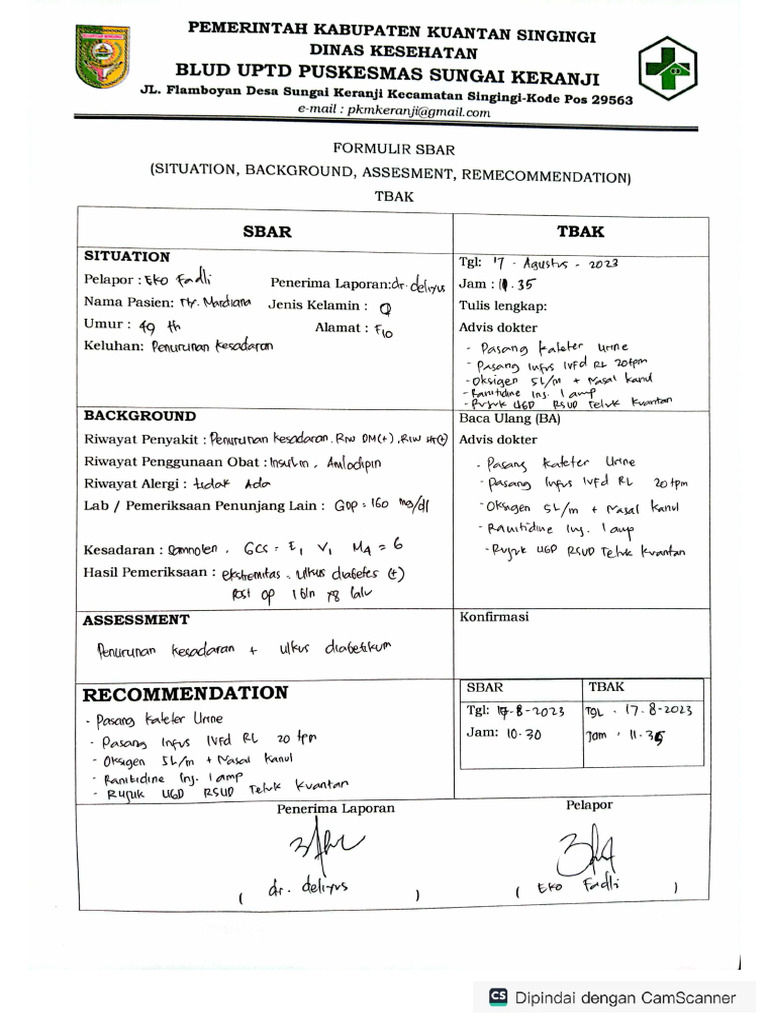 PEMERINTAH KABUPATEN KUANTAN SINGINGI
DINAS KESEHATAN
BLUD UPTD PUSKESMAS SUNGAI KERANJI
JL. Flamboyan Desa Sungai Keranji Kecamatan Singingi-Kode Pos 29563
e-mail : pkmkeranji@gmail.com
FORMULIR SBAR
(SITUATION, BACKGROUND, ASSESMENT, REMECOMMENDATION)
TBAK
SBAR
SITUATION
Pelapor : Eko Fadli Penerima Laporan: dr. deliyus
Nama Pasien: Ny. Mardiana Jenis Kelamin : ♀
Umur : 49 th Alamat : F10
Keluhan: Penurunan kesadaran
TBAK
Tgl: 17 - Agustus - 2023
Jam : 11.35
Tulis lengkap:
Advis dokter
- Pasang kateter urine
- Pasang Infus IVFd RL 20 tpm
- Oksigen 5L/m + Nasal kanul
- Ranitidine Inj. 1 amp
- Rujuk UGD RSUD Teluk Kuantan
BACKGROUND
Riwayat Penyakit : Penurunan kesadaran, Riw DM(+), Riw HT(+)
Riwayat Penggunaan Obat : Insulin, Amlodipin
Riwayat Alergi : tidak Ada
Lab / Pemeriksaan Penunjang Lain : GDP = 160 mg/dl
Kesadaran : Somnolen, GCS = E1 V1 M4 = 6
Hasil Pemeriksaan : ekstremitas = ulkus diabetes (+)
Post op 1 bln yg lalu
Baca Ulang (BA)
Advis dokter
- Pasang kateter Urine
- Pasang Infus IVFd RL 20 tpm
- Oksigen 5L/m + Nasal kanul
- Ranitidine Inj. 1 amp
- Rujuk UGD RSUD Teluk Kuantan
ASSESSMENT
Penurunan kesadaran + ulkus diabetikum
Konfirmasi
RECOMMENDATION
- Pasang kateter Urine
- Pasang Infus IVFd RL 20 tpm
- Oksigen 5L/m + Nasal kanul
- Ranitidine Inj. 1 amp
- Rujuk UGD RSUD Teluk Kuantan
SBAR
Tgl: 17-8-2023
Jam: 10.30
TBAK
TGL. 17.8-2023
Jam : 11.35
Penerima Laporan
( dr. deliyus )
Pelapor
( Eko Fadli )
CS Dipindai dengan CamScanner